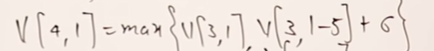 V[4,1] = max{V[3,1], V[3,1-5] + 6}